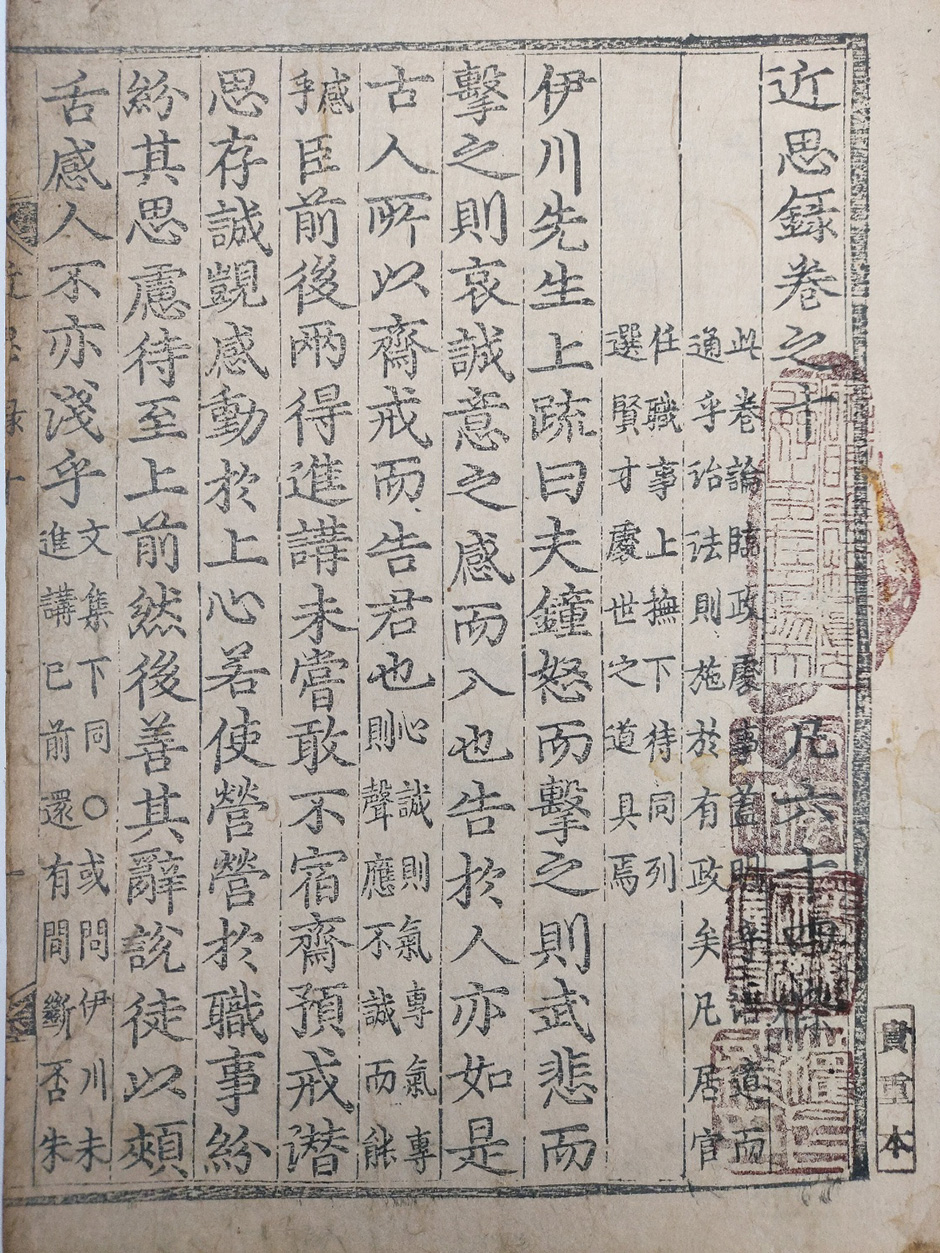 近思録卷之十 凡六十四條
此卷論臨政處事盖明乎治道而
通乎治法則施於有政矣凡居官
任職事上撫下待同列
選賢才處世之道具焉
伊川先生上疏曰夫鐘怒而擊之則武悲而
擊之則哀誠意之感而入也告於人亦如是
古人所以齋戒而告君也心誠則氣專氣專
則聲應不誠而能
感乎臣前後兩得進講未嘗敢不宿齋預戒潜
思存誠覬感動於上心若使營營於職事紛
紛其思慮待至上前然後善其辭說徒以頰
舌感人不亦淺乎文集下同○或問伊川未
進講已前還有間斷否朱
寶重本